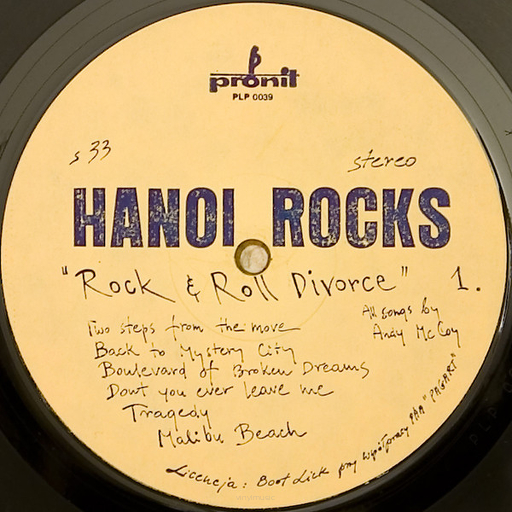 pronit
PLP 0039
s 33
stereo
HANOI ROCKS
"Rock & Roll Divorce" 1.
All songs by
Andy McCoy
Two steps from the move
Back to Mystery City
Boulevard of Broken Dreams
Dont you ever leave me
Tragedy
Malibu Beach
Licencja: Boot Lick przy współpracy PHA "PAGART"